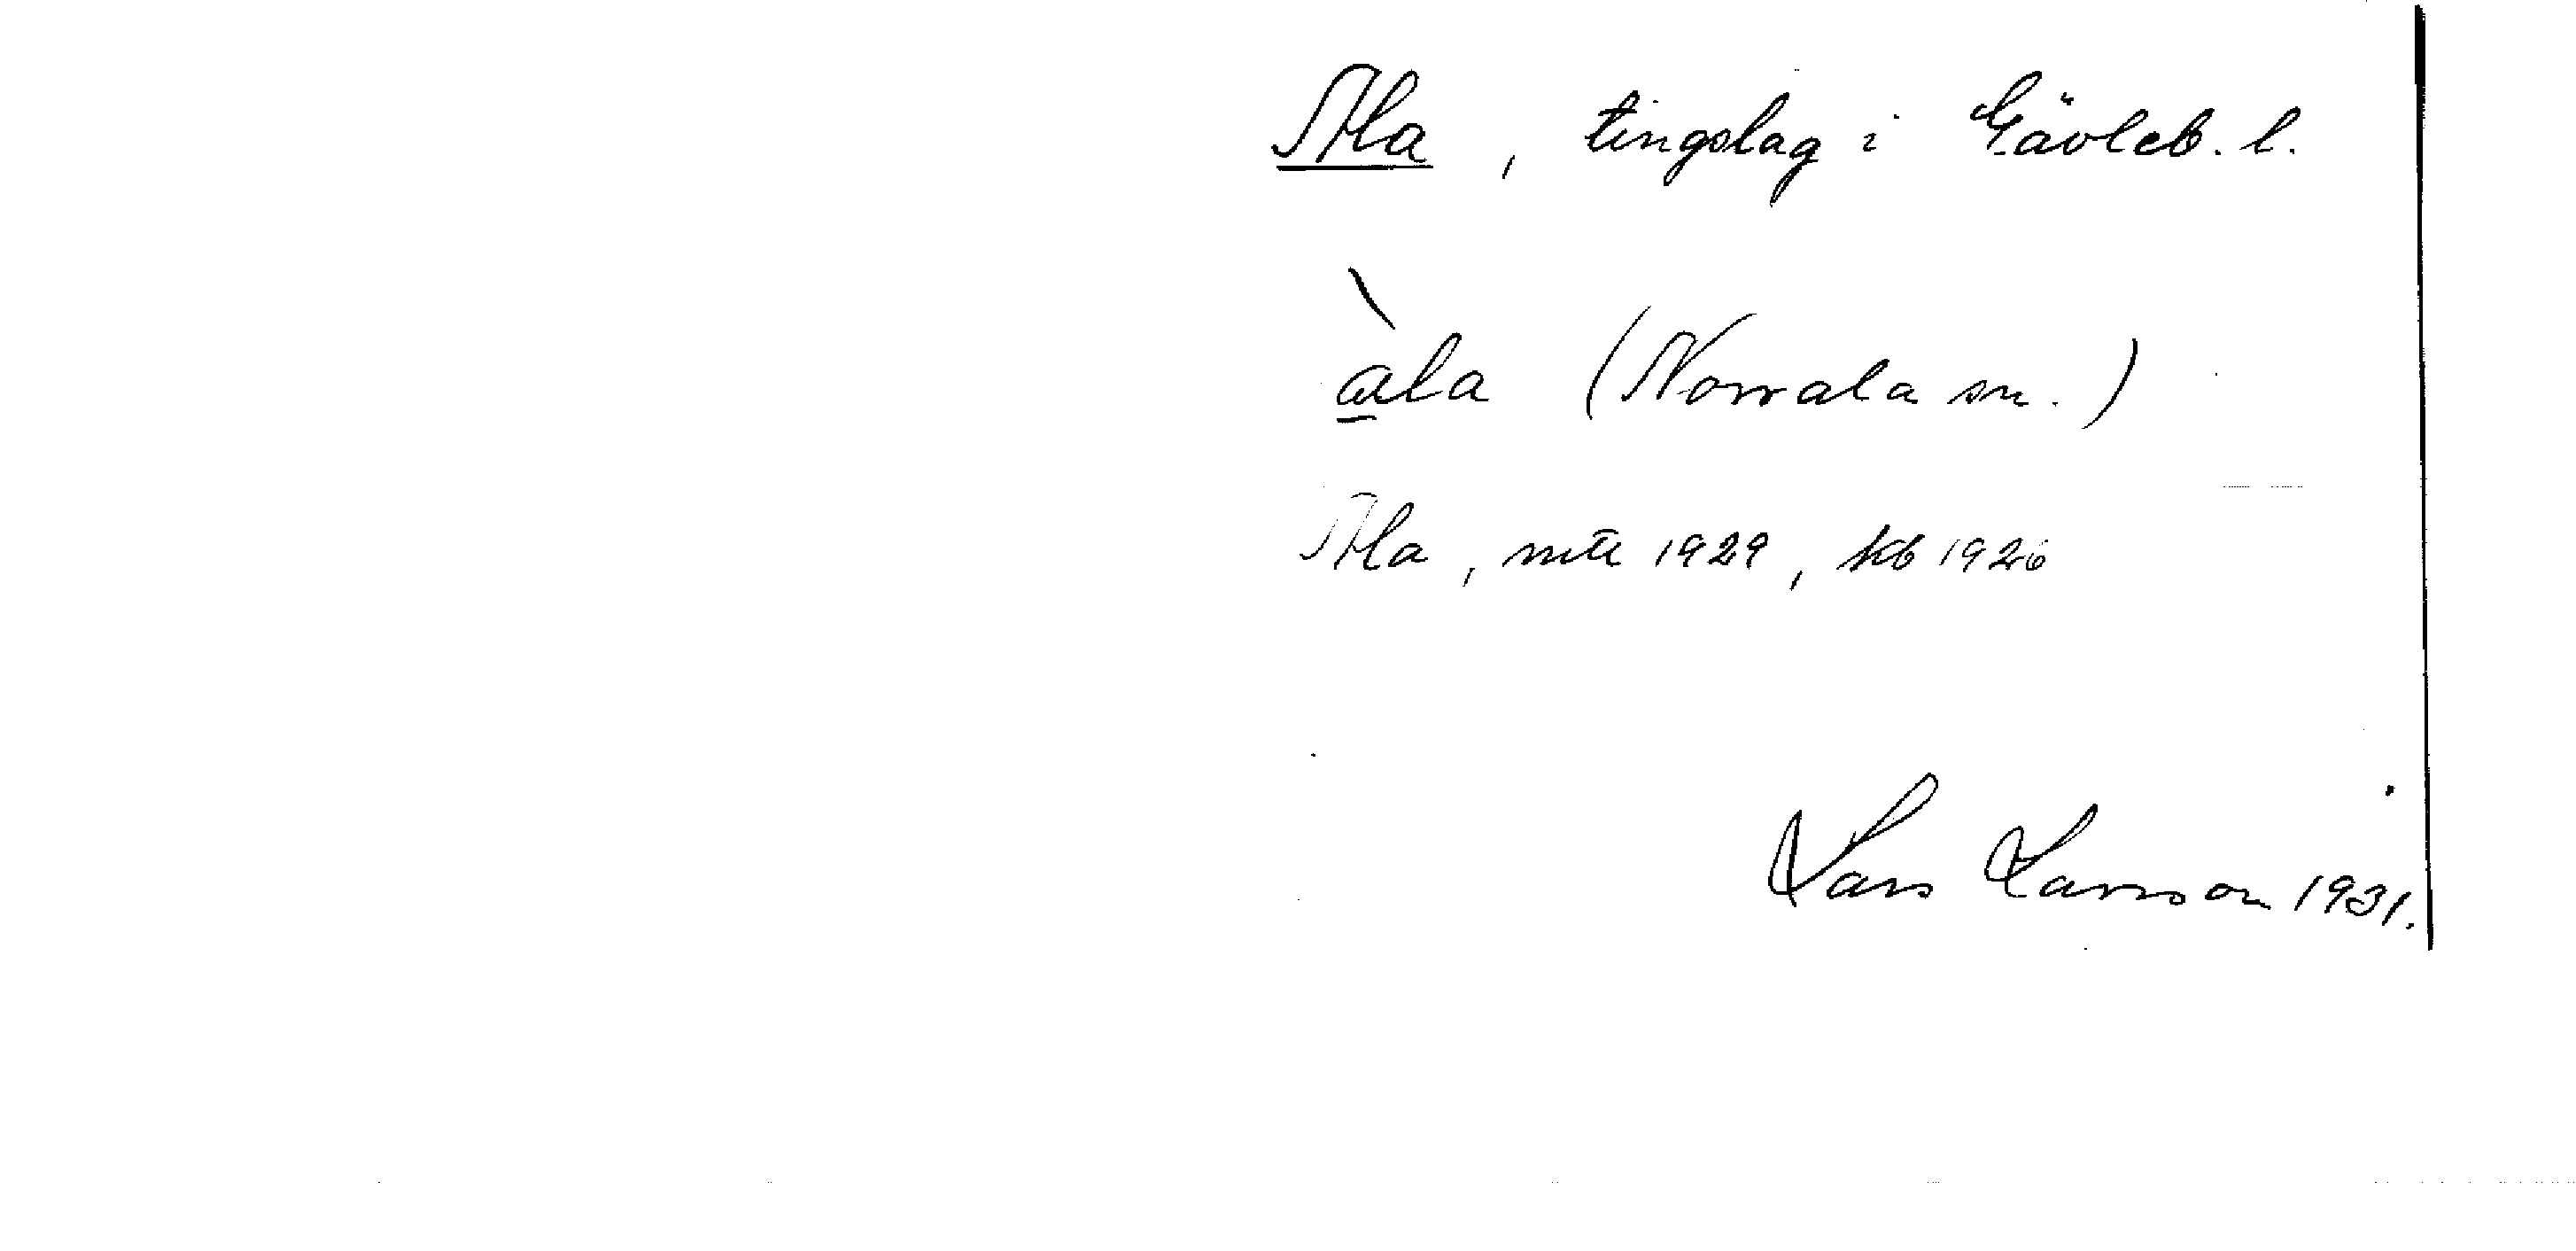 Ala, tingslag i Gävleb. l.
àla (Norrala sn.)
Ala, mtl 1929, kb 1926
Lars Larsson 1931.